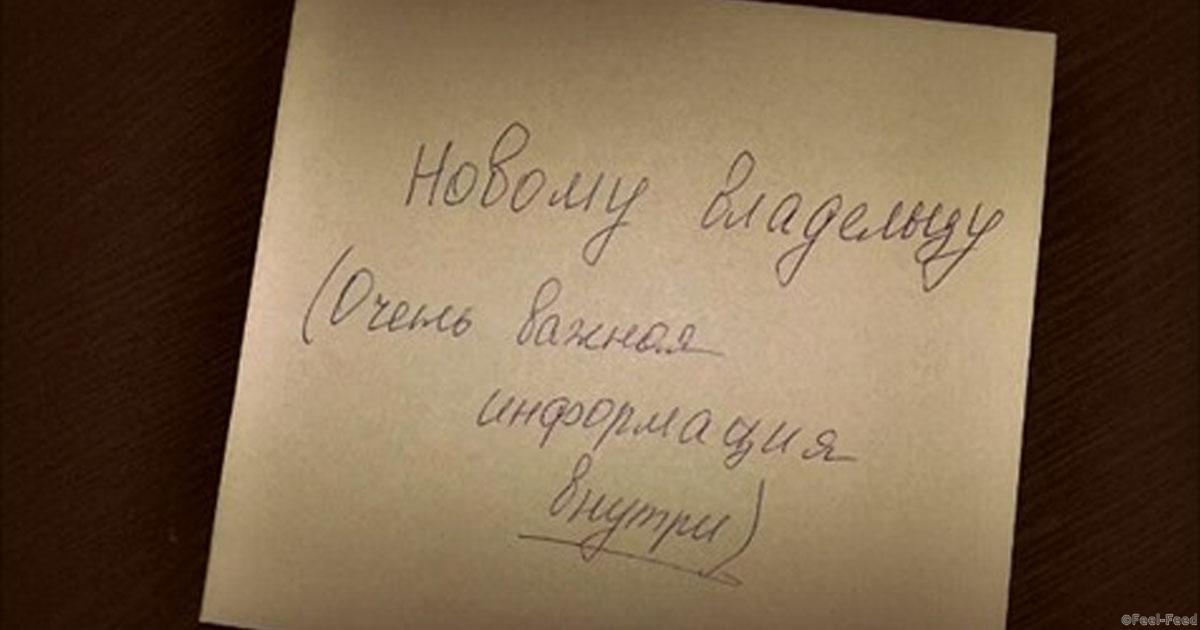 Новому владельцу
(Очень важная
информация
внутри)
©Feel-Feed